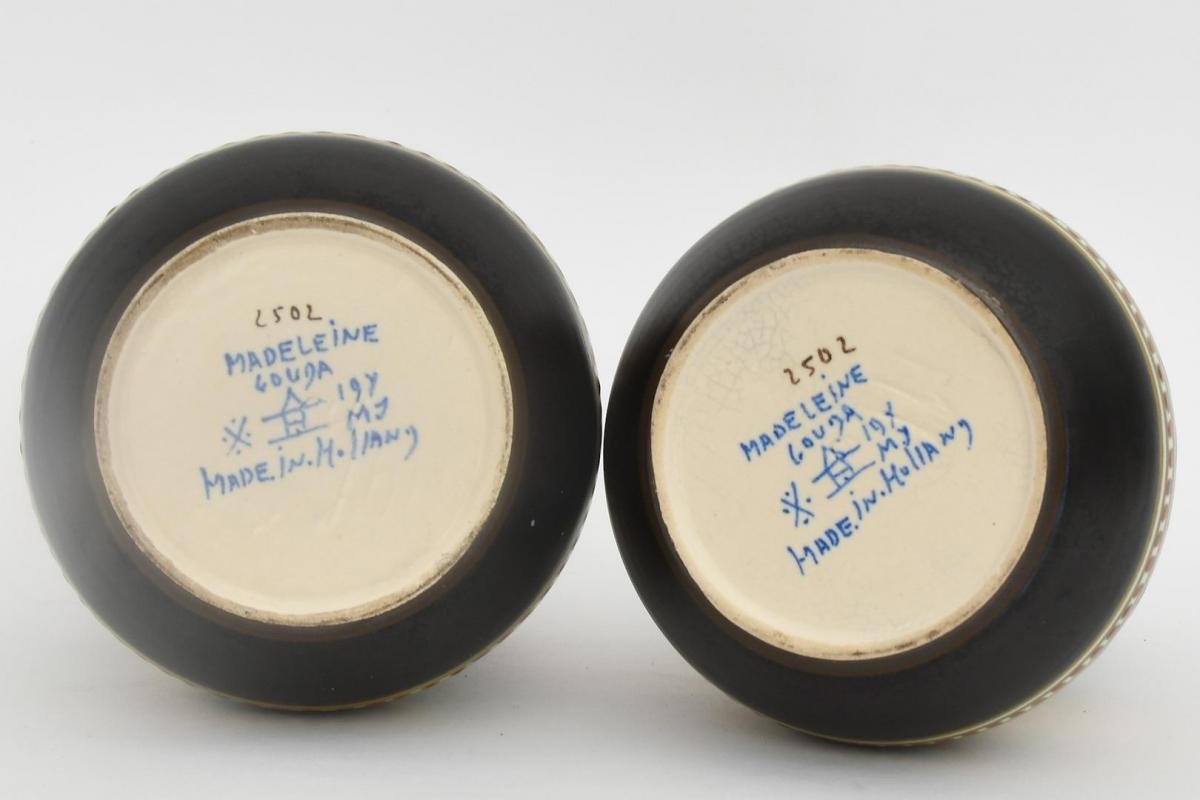 2502
MADELEINE
GOUDA
※ 19Y
MJ
MADE.IN.HOLLAND
2502
MADELEINE
GOUDA
※ 19Y
MJ
MADE.IN.HOLLAND